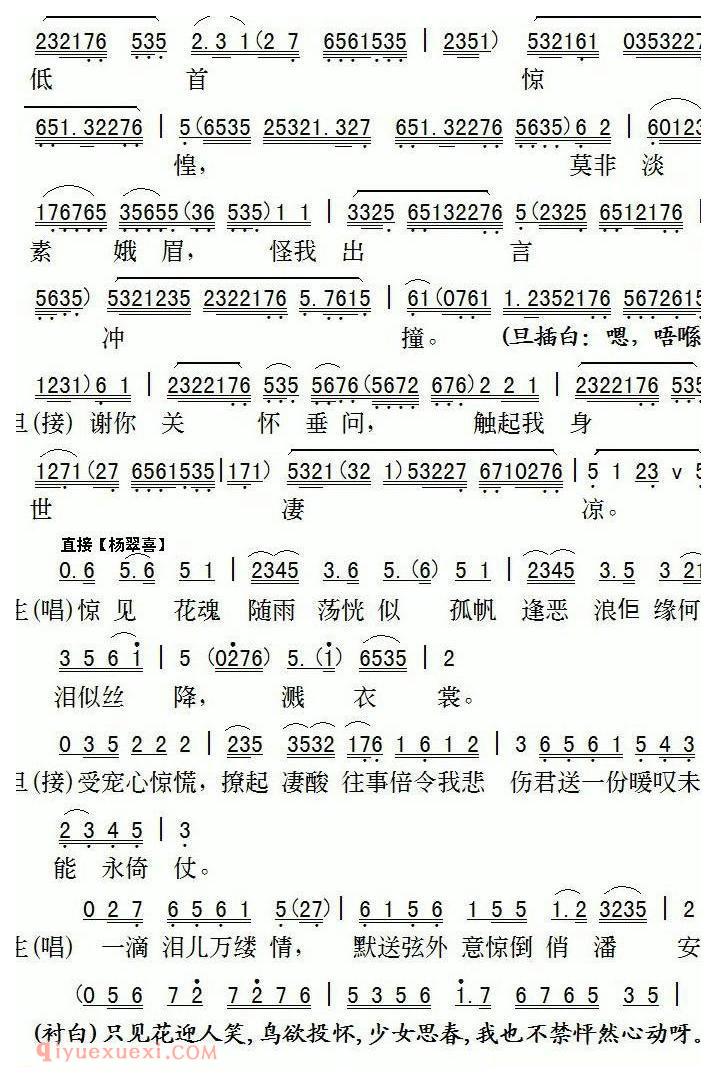 232176 535 2.3 1(2 7 6561535 | 2351) 532161 0353227
低 首 惊
651.32276 5(6535 25321.327 651.32276 5635)6 2 | 60123
惶， 莫非 淡
176765 35655(36 535)1 1 | 3325 65132276 5(2325 6512176
素 娥 眉， 怪我 出 言
5635) 5321235 2322176 5.7615 | 61(0761 1.2352176 5672615
冲 撞。 (旦插白：嗯，唔喺
1231)6 1 | 2322176 535 5676(5672 676)2 2 1 | 2322176 535
旦(接) 谢你 关 怀 垂 问， 触起我 身
1271(27 6561535|171) 5321(32 1)53227 6710276 | 5 1 23 v 5
世 凄 凉。
直接【杨翠喜】
0.6 5.6 5 1 | 2345 3.6 5.(6) 5 1 | 2345 3.5 3 21
生(唱) 惊 见 花魂 随雨 荡恍 似 孤帆 逢恶 浪佢 缘何
3 5 6 1 | 5 (0276) 5.(1) 6535 | 2
泪似丝 降， 溅 衣 裳。
0 3 5 2 2 2 | 235 3532 176 1 6 1 2 | 3 6 5 6 1 5 4 3
旦(接) 受宠心惊慌，撩起 凄酸 往事倍令我悲 伤君送一份暖叹未
2 3 4 5 | 3
能 永倚 仗。
0 2 7 6 5 6 1 5(27) | 6 1 5 6 1 5 5 1.2 3235 | 2
生(唱) 一滴 泪儿万缕 情， 默送弦外 意惊倒 俏 潘 安
(0 5 6 7 2 7 2 7 6 | 5 3 5 6 1.7 6 7 6 5 3 5 |
(衬白) 只见花迎人笑,鸟欲投怀,少女思春,我也不禁怦然心动呀。
qiyuexuexi.com